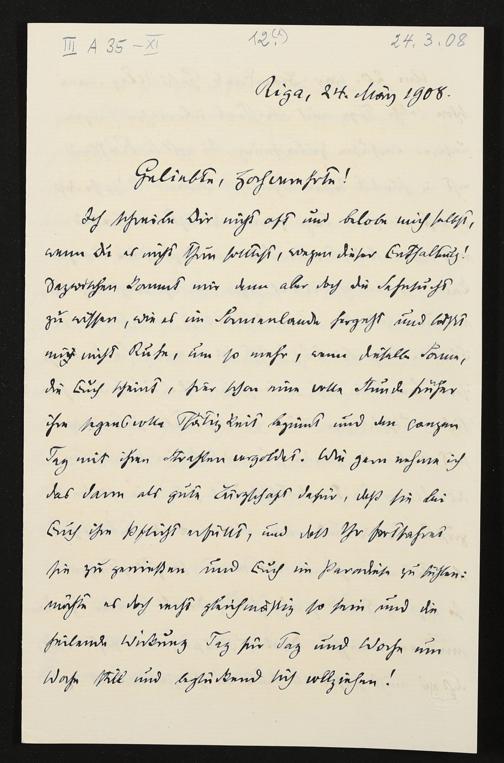 III A 35 - XI 12.(1) 24.3.08
Riga, 24. März 1908.
Geliebte, Hochverehrte!
Ich schreibe Dir nicht oft und belobe mich selbst,
wenn Du es nicht thun solltest, wegen dieser Enthaltung!
Dazwischen kommt mir denn aber doch die Sehnsucht
zu wissen, wie es im Sonnenlande hergeht und läßt
mich nicht Ruhe, um so mehr, wenn dieselbe Sonne,
die Euch scheint, hier schon eine volle Stunde früher
ihre segensvolle Thätigkeit beginnt und den ganzen
Tag mit ihren Strahlen vergoldet. Wie gern nehme ich
das dann als gute Bürgschaft dafür, daß sie bei
Euch ihre Pflicht erfüllt, und daß Ihr fortfahret
sie zu genießen und Euch im Paradiese zu fühlen:
möchte es doch recht gleichmäßig so sein und die
heilende Wirkung Tag für Tag und Woche um
Woche still und beglückend sich vollziehen!